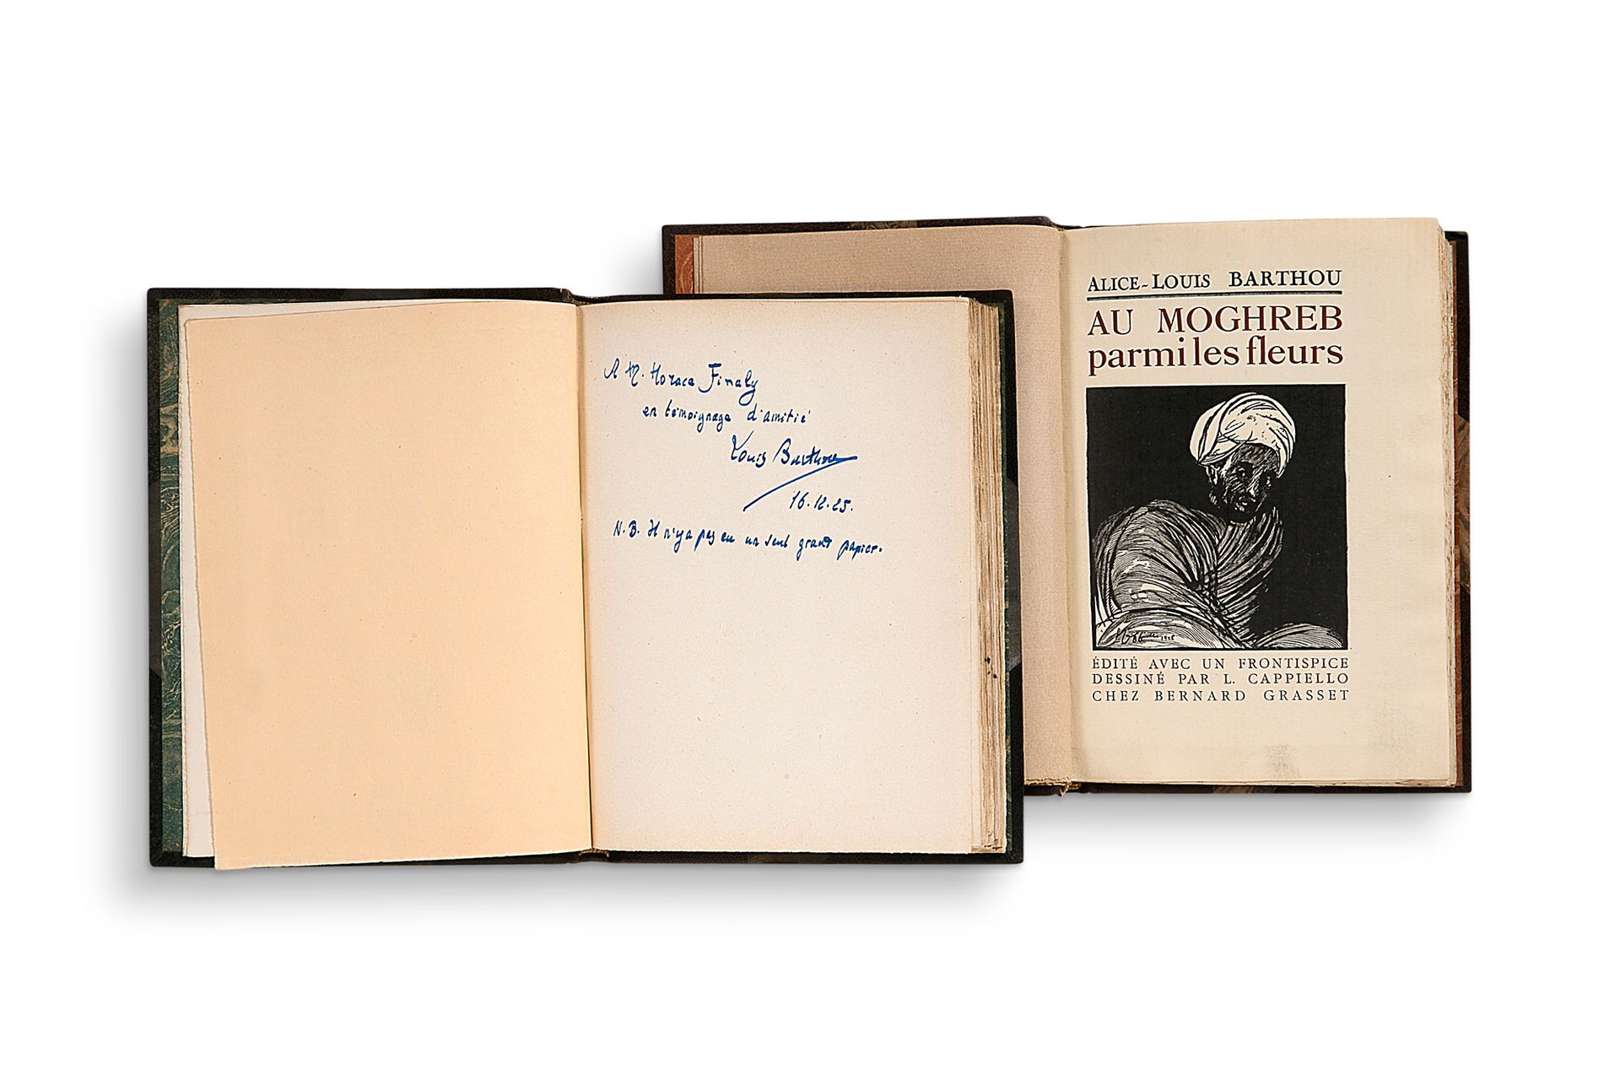 A M. Horace Finaly
en témoignage d'amitié
Louis Barthou
16.12.25.
N.B. Il n'y a pas eu un seul grand papier.
ALICE-LOUIS BARTHOU
AU MOGHREB
parmi les fleurs
ÉDITÉ AVEC UN FRONTISPICE
DESSINÉ PAR L. CAPPIELLO
CHEZ BERNARD GRASSET